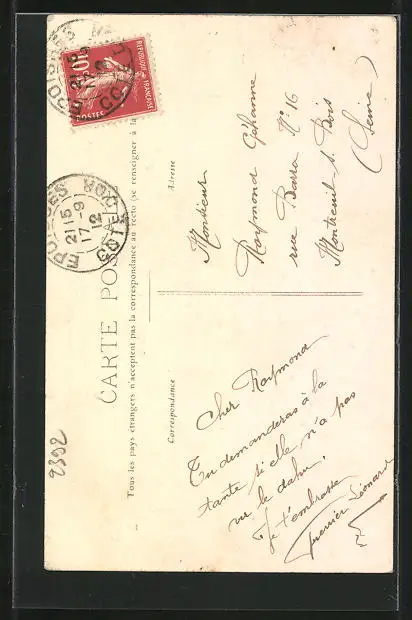 CARTE POSTALE
Tous les pays étrangers n'acceptent pas la correspondance au recto (se renseigner à la
Correspondance
Adresse
RÉPUBLIQUE FRANÇAISE
10
POSTES
EPOISSES
21 15
17 -9
12
COTE D'OR
2392
Cher Raymond
Tu demanderas à la
tante si elle n'a pas
vu le dahu.
Je t'embrasse
Léonard
Monsieur
Raymond
rue Barra N° 16
Montreuil s. Bois
(Seine)